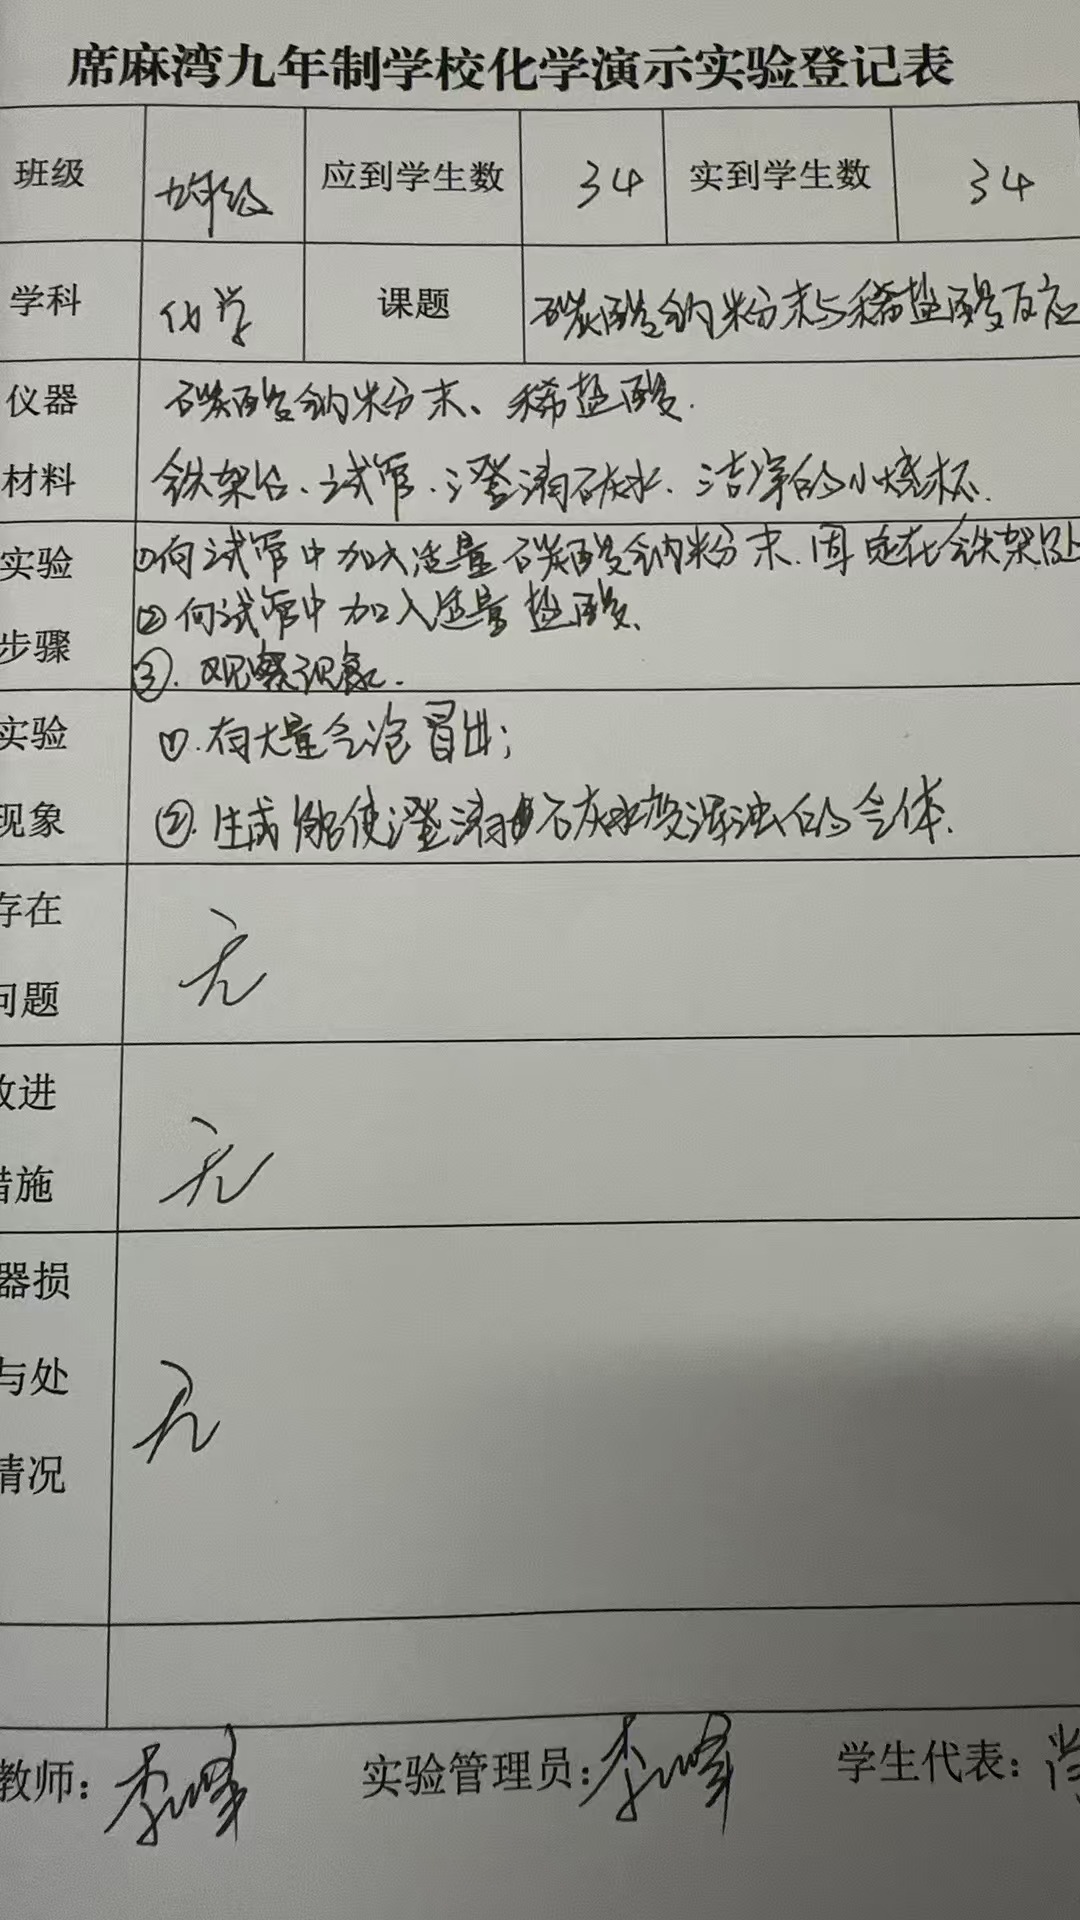 席麻湾九年制学校化学演示实验登记表
班级 九年级 应到学生数 34 实到学生数 34
学科 化学 课题 碳酸钠粉末与稀盐酸反应
仪器 碳酸钠粉末、稀盐酸.
材料 铁架台、试管、澄清石灰水、洁净的小烧杯.
实验 ①向试管中加入适量碳酸钠粉末.固定在铁架处
②向试管中加入适量盐酸.
步骤
③.观察现象.
实验 ①.有大量气泡冒出;
现象 ②.生成能使澄清石灰水变浑浊的气体.
存在 无
问题
改进
措施 无
器损
与处 无
情况
教师: 李峰 实验管理员: 李峰 学生代表: